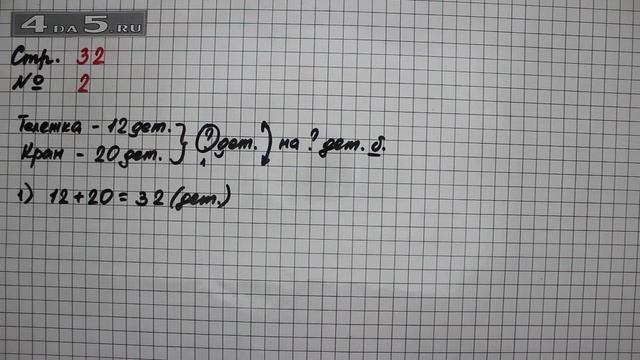 4DA5.RU
Стр. 32
№ 2
Тележка - 12 дет. } ? дет. ) на ? дет. б.
Кран - 20 дет.
1
1) 12 + 20 = 32 (дет.)